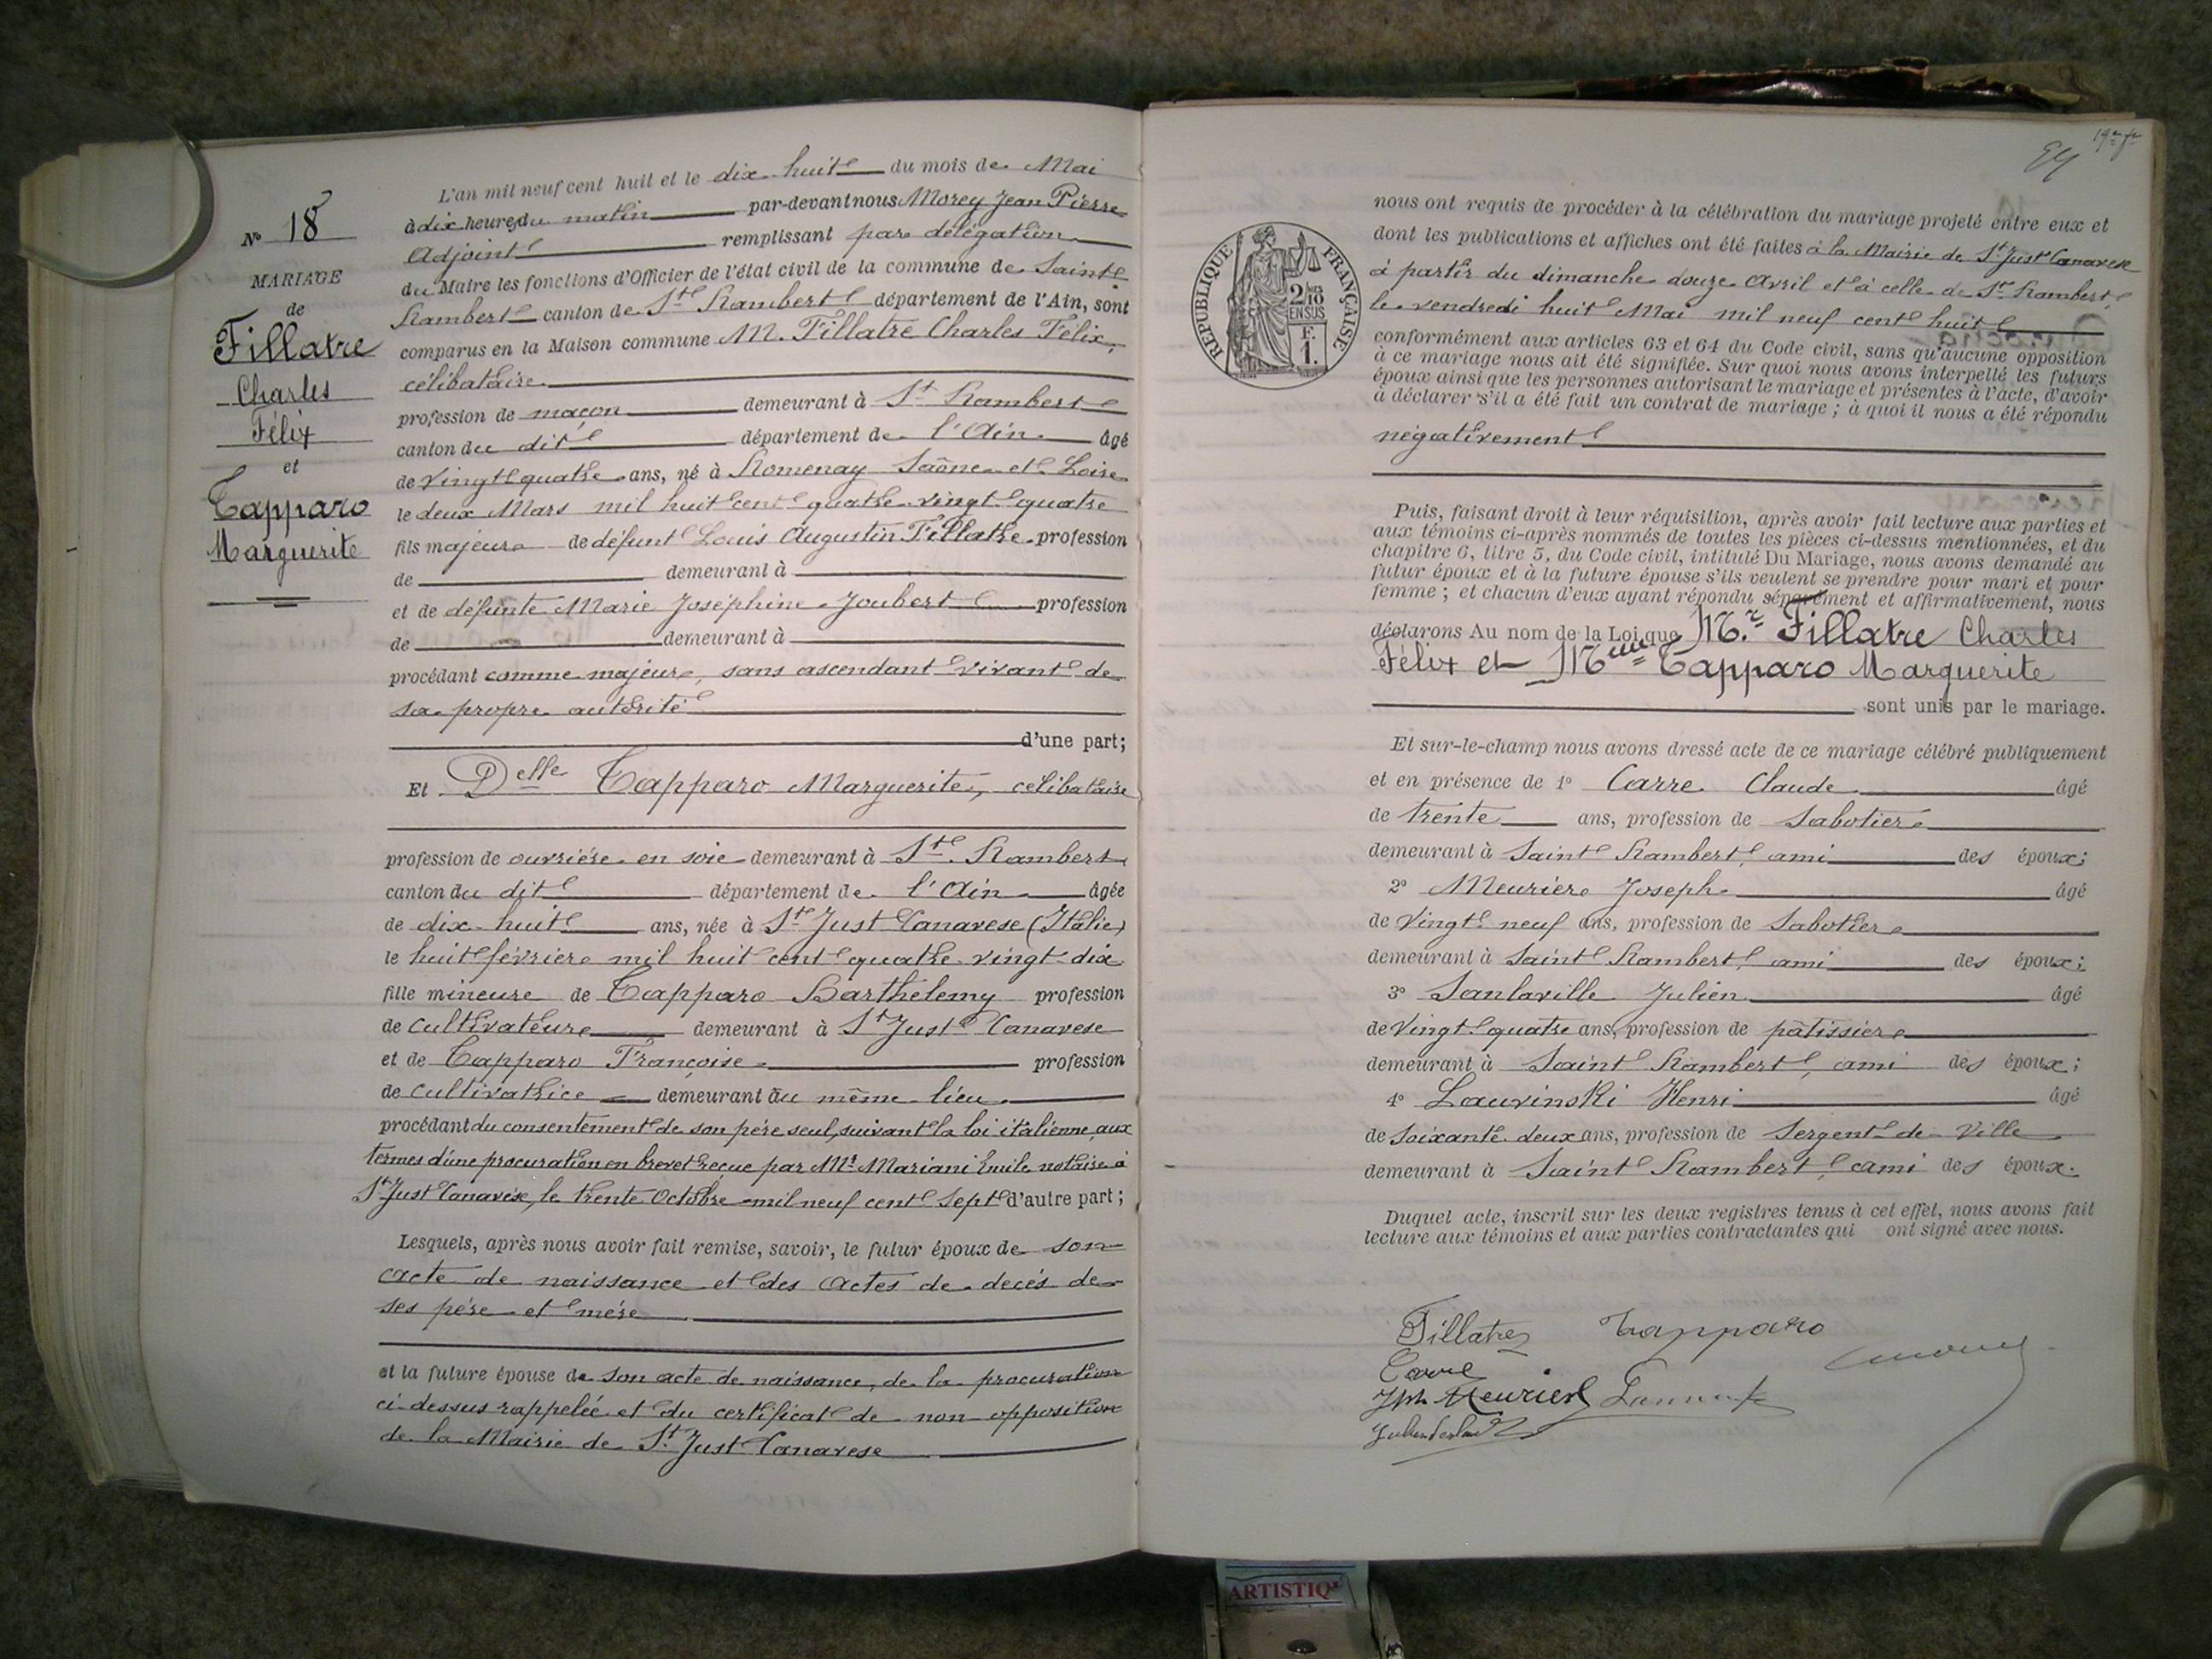 N° 18
MARIAGE
de
Fillatre
Charles
Félix
et
Tapparo
Marguerite
L'an mil neuf cent huit et le dix-huit du mois de Mai
à dix heures du matin par-devant nous Morey Jean Pierre
Adjoint remplissant par délégation
du Maire les fonctions d'Officier de l'état civil de la commune de Saint
Rambert canton de St Rambert département de l'Ain, sont
comparus en la Maison commune M. Fillatre Charles Félix,
célibataire
profession de maçon demeurant à St Rambert
canton du dit département de l'Ain âgé
de Vingt quatre ans, né à Romenay Saône et Loire
le deux Mars mil huit cent quatre vingt quatre
fils majeur de défunt Louis Augustin Fillatre profession
de demeurant à
et de défunte Marie Joséphine Joubert profession
de demeurant à
procédant comme majeur, sans ascendant vivant de
sa propre autorité
d'une part;
Et Delle Tapparo Marguerite, célibataire
profession de ouvrière en soie demeurant à St Rambert
canton du dit département de l'Ain âgée
de dix-huit ans, née à St Just Canavese (Italie)
le huit février mil huit cent quatre vingt dix
fille mineure de Tapparo Barthélemy profession
de cultivateur demeurant à St Just Canavese
et de Tapparo Françoise profession
de cultivatrice demeurant au même lieu
procédant du consentement de son père seul, suivant la loi italienne, aux
termes d'une procuration en brevet reçue par Mr Mariani Emile notaire à
St Just Canavese, le trente Octobre mil neuf cent sept d'autre part;
Lesquels, après nous avoir fait remise, savoir, le futur époux de son
acte de naissance et des actes de decès de
ses père et mère
et la future épouse de son acte de naissance, de la procuration
ci-dessus rappelée et du certificat de non-opposition
de la Mairie de St Just Canavese
RÉPUBLIQUE FRANÇAISE
2/10
EN SUS
F.
1.
nous ont requis de procéder à la célébration du mariage projeté entre eux et
dont les publications et affiches ont été faites à la Mairie de St Just Canavese
à partir du dimanche douze Avril et à celle de St Rambert
le vendredi huit Mai mil neuf cent huit
conformément aux articles 63 et 64 du Code civil, sans qu'aucune opposition
à ce mariage nous ait été signifiée. Sur quoi nous avons interpellé les futurs
époux ainsi que les personnes autorisant le mariage et présentes à l'acte, d'avoir
à déclarer s'il a été fait un contrat de mariage; à quoi il nous a été répondu
négativement
Puis, faisant droit à leur réquisition, après avoir fait lecture aux parties et
aux témoins ci-après nommés de toutes les pièces ci-dessus mentionnées, et du
chapitre 6, titre 5, du Code civil, intitulé Du Mariage, nous avons demandé au
futur époux et à la future épouse s'ils veulent se prendre pour mari et pour
femme; et chacun d'eux ayant répondu séparément et affirmativement, nous
déclarons Au nom de la Loi que Mr. Fillatre Charles
Félix et Melle Tapparo Marguerite
sont unis par le mariage.
Et sur-le-champ nous avons dressé acte de ce mariage célébré publiquement
et en présence de 1° Carre Claude âgé
de trente ans, profession de Sabotier
demeurant à Saint Rambert, ami des époux;
2° Meurier Joseph âgé
de Vingt neuf ans, profession de Sabotier
demeurant à Saint Rambert, ami des époux;
3° Sanlaville Julien âgé
de Vingt quatre ans, profession de pâtissier
demeurant à Saint Rambert, ami des époux;
4° Lauvinski Henri âgé
de Soixante deux ans, profession de Sergent de Ville
demeurant à Saint Rambert, ami des époux.
Duquel acte, inscrit sur les deux registres tenus à cet effet, nous avons fait
lecture aux témoins et aux parties contractantes qui ont signé avec nous.
Fillatre Tapparo
Carre
Jph Meurier
ARTISTIQ